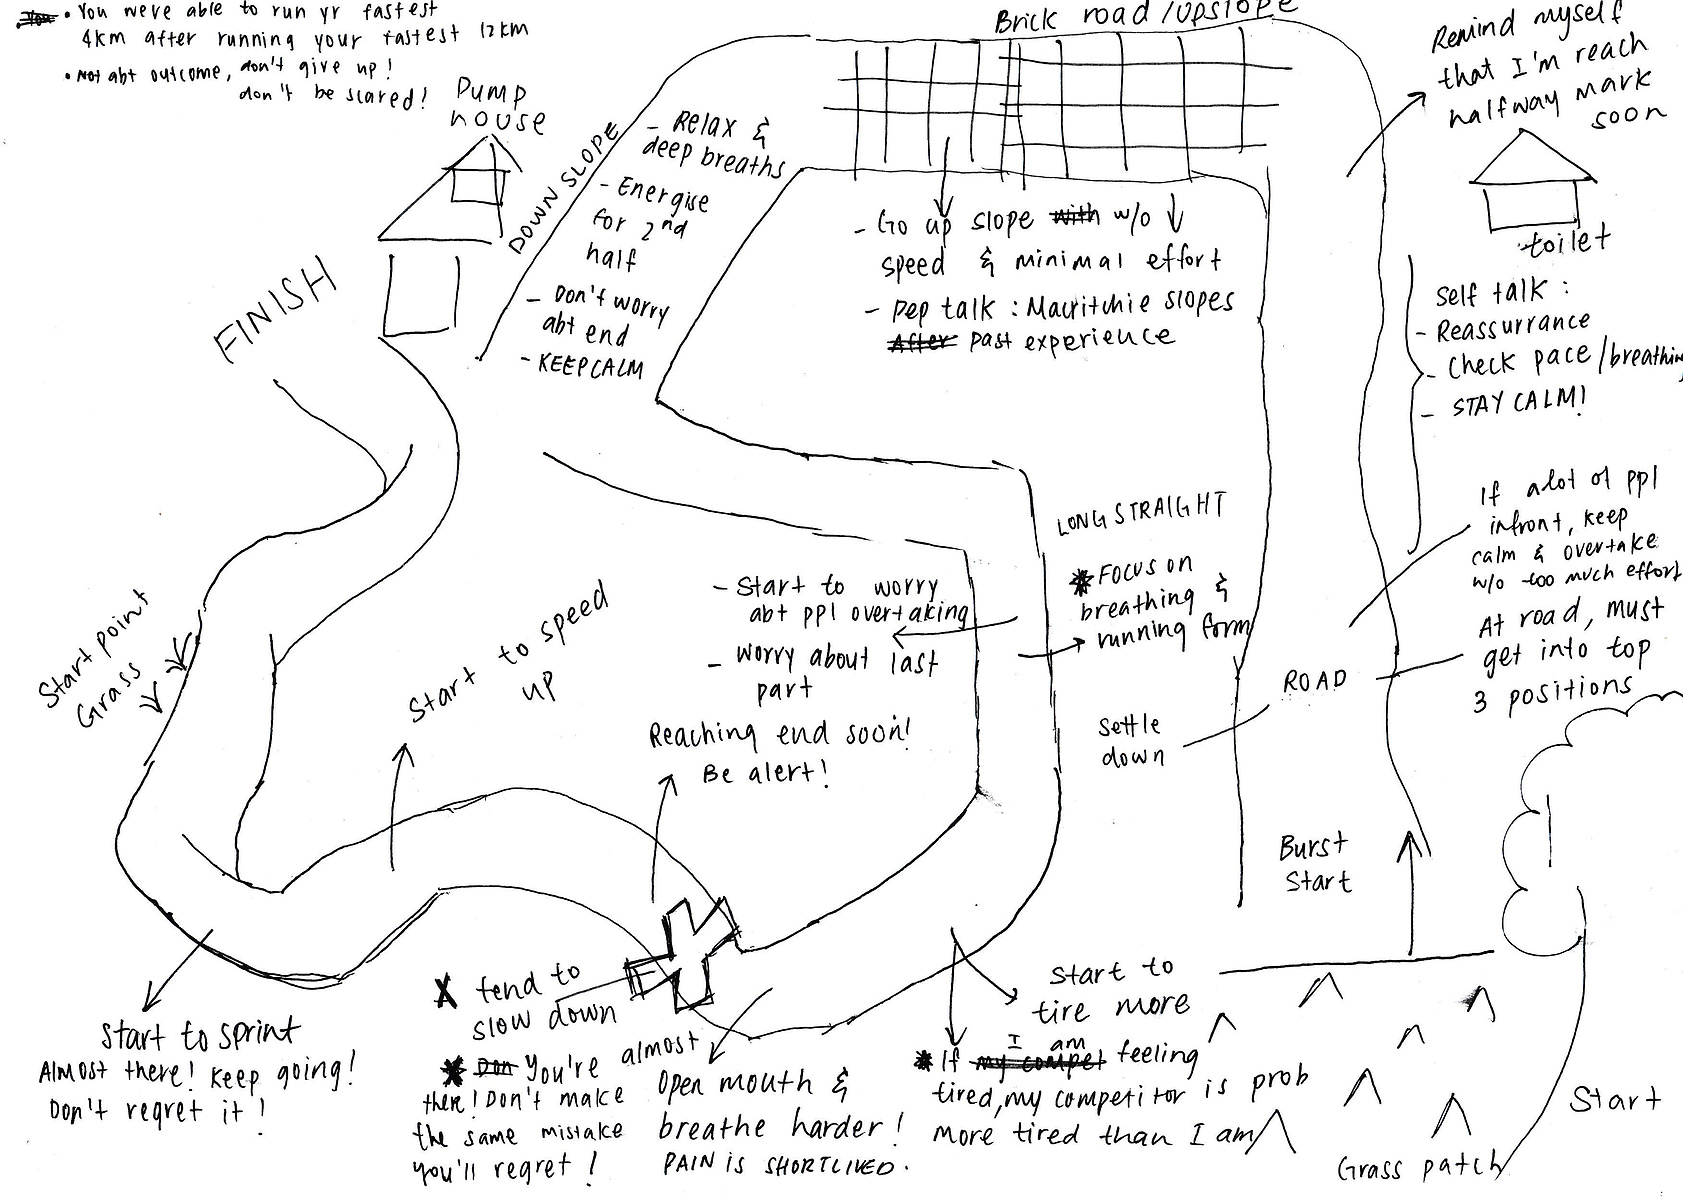 • You were able to run yr fastest
4km after running your fastest 12km
• Not abt outcome, don't give up!
don't be scared!
Pump
house
FINISH
DOWN SLOPE
- Relax &
deep breaths
- Energise
for 2nd
half
- Don't worry
abt end
- KEEP CALM
Brick road / upslope
- Go up slope with w/o ↓
speed & minimal effort
- Pep talk : Macritchie slopes
After past experience
Remind myself
that I'm reach
halfway mark
soon
toilet
Self talk :
- Reassurrance
- Check pace / breathing
- STAY CALM!
If alot of ppl
infront, keep
calm & overtake
w/o too much effort
At road, must
get into top
3 positions
ROAD
Settle
down
Burst
Start
LONG STRAIGHT
* Focus on
breathing &
running form
- Start to worry
abt ppl overtaking
- worry about last
part
Reaching end soon!
Be alert!
Start to speed
up
Start point
Grass
Start to sprint
Almost there! Keep going!
Don't regret it!
X tend to
slow down
* Don You're almost
there! Don't make
the same mistake
you'll regret!
Open mouth &
breathe harder!
PAIN is SHORTLIVED.
Start to
tire more
I am
* If my compet feeling
tired, my competitor is prob
more tired than I am
Start
Grass patch